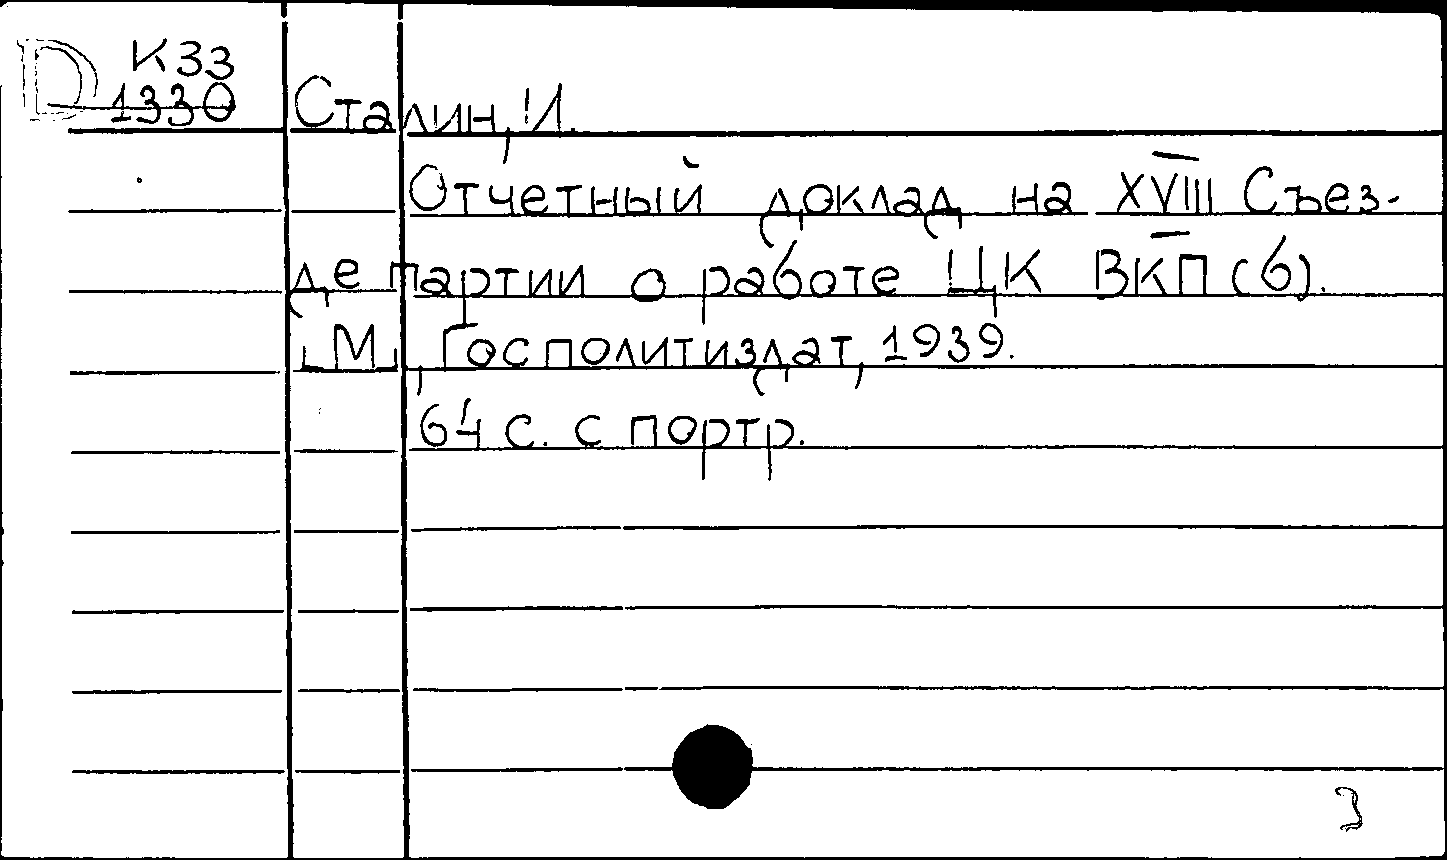 D К33
1330
Сталин, И.
Отчетный доклад на XVIII Съез-
де партии о работе ЦК ВКП(б).
[М], Госполитиздат, 1939.
64 с. с портр.
3